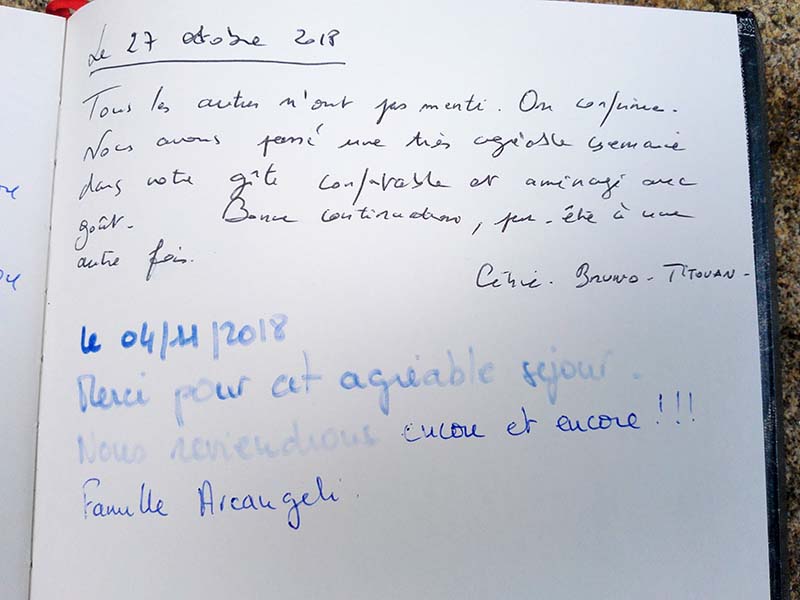 Le 27 octobre 2018
Tous les autres n'ont pas menti. On confirme.
Nous avons passé une très agréable semaine
dans votre gîte confortable et aménagé avec
goût. Bonne continuation, peut-être à une
autre fois.
Bruno - Titouan -
le 04/11/2018
Merci pour cet agréable séjour.
Nous reviendrons encore et encore !!!
Famille Arcangeli.